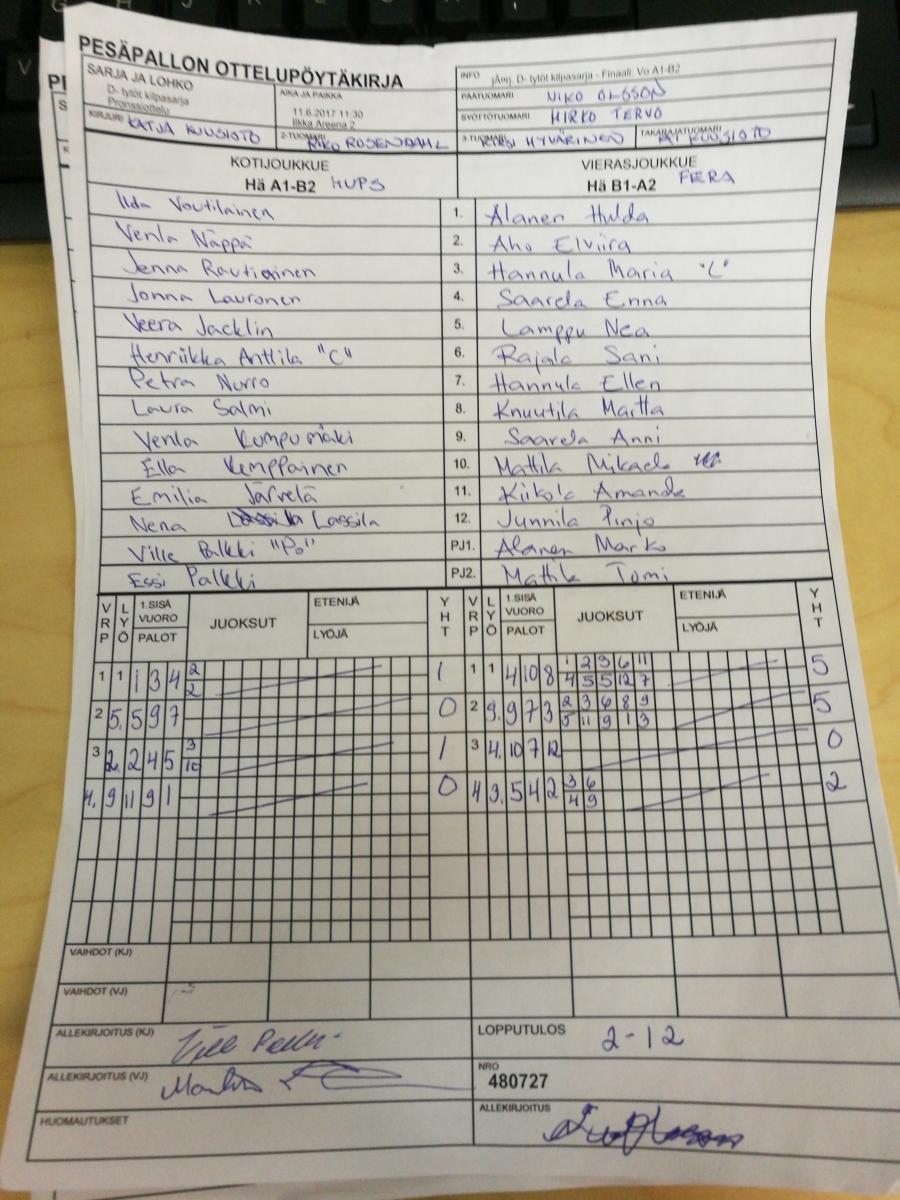 PESÄPALLON OTTELUPÖYTÄKIRJA
SARJA JA LOHKO
D- tytöt kilpasarja
Pronssiottelu
AIKA JA PAIKKA
11.6.2017 11:30
Ilkka Areena 2
INFO jÄerj. D- tytöt kilpasarja - Finaali: Vo A1-B2
PÄÄTUOMARI NIKO OLSSON
SYÖTTÖTUOMARI MIRKO TERVO
KIRJURI KATJA KUUSISTO
2-TUOMARI RIKO ROSENDAHL
3-TUOMARI HYVÄRINEN
TAKARAJATUOMARI KUUSISTO
KOTIJOUKKUE
Hä A1-B2 HUPS
VIERASJOUKKUE
Hä B1-A2 FERA
Iida Voutilainen 1. Alanen Hulda
Venla Näppä 2. Aho Elviira
Jenna Rautiainen 3. Hannula Maria "L"
Jonna Lauronen 4. Saarela Enna
Veera Jacklin 5. Lamppu Nea
Henriikka Anttila "C" 6. Rajala Sani
Petra Nurro 7. Hannula Ellen
Laura Salmi 8. Knuutila Martta
Venla Kumpumäki 9. Saarela Anni
Ella Kemppainen 10. Mattila Mikaela
Emilia Järvelä 11. Kiikola Amanda
Nena Lassila 12. Junnila Pinjo
Ville Palkki "Po" PJ1. Alanen Marko
Essi Palkki PJ2. Mattila Tomi
VRP LYÖ 1.SISÄ VUORO PALOT JUOKSUT ETENIJÄ LYÖJÄ YHT VRP LYÖ 1.SISÄ VUORO PALOT JUOKSUT ETENIJÄ LYÖJÄ YHT
1 1 1 3 4 2 1 1 1 4 10 8 1 2 3 6 11 5
2 4 5 5 12 7
2 5. 5 9 7 0 2 9. 9 7 3 2 3 6 8 9 5
5 11 9 1 3
3 2. 2 4 5 3 1 3 4. 10 7 12 0
10
4. 9 11 9 1 0 4 3. 5 4 2 3 6 2
4 9
VAIHDOT (KJ)
VAIHDOT (VJ)
ALLEKIRJOITUS (KJ)
LOPPUTULOS 2-12
ALLEKIRJOITUS (VJ)
NRO
480727
HUOMAUTUKSET
ALLEKIRJOITUS